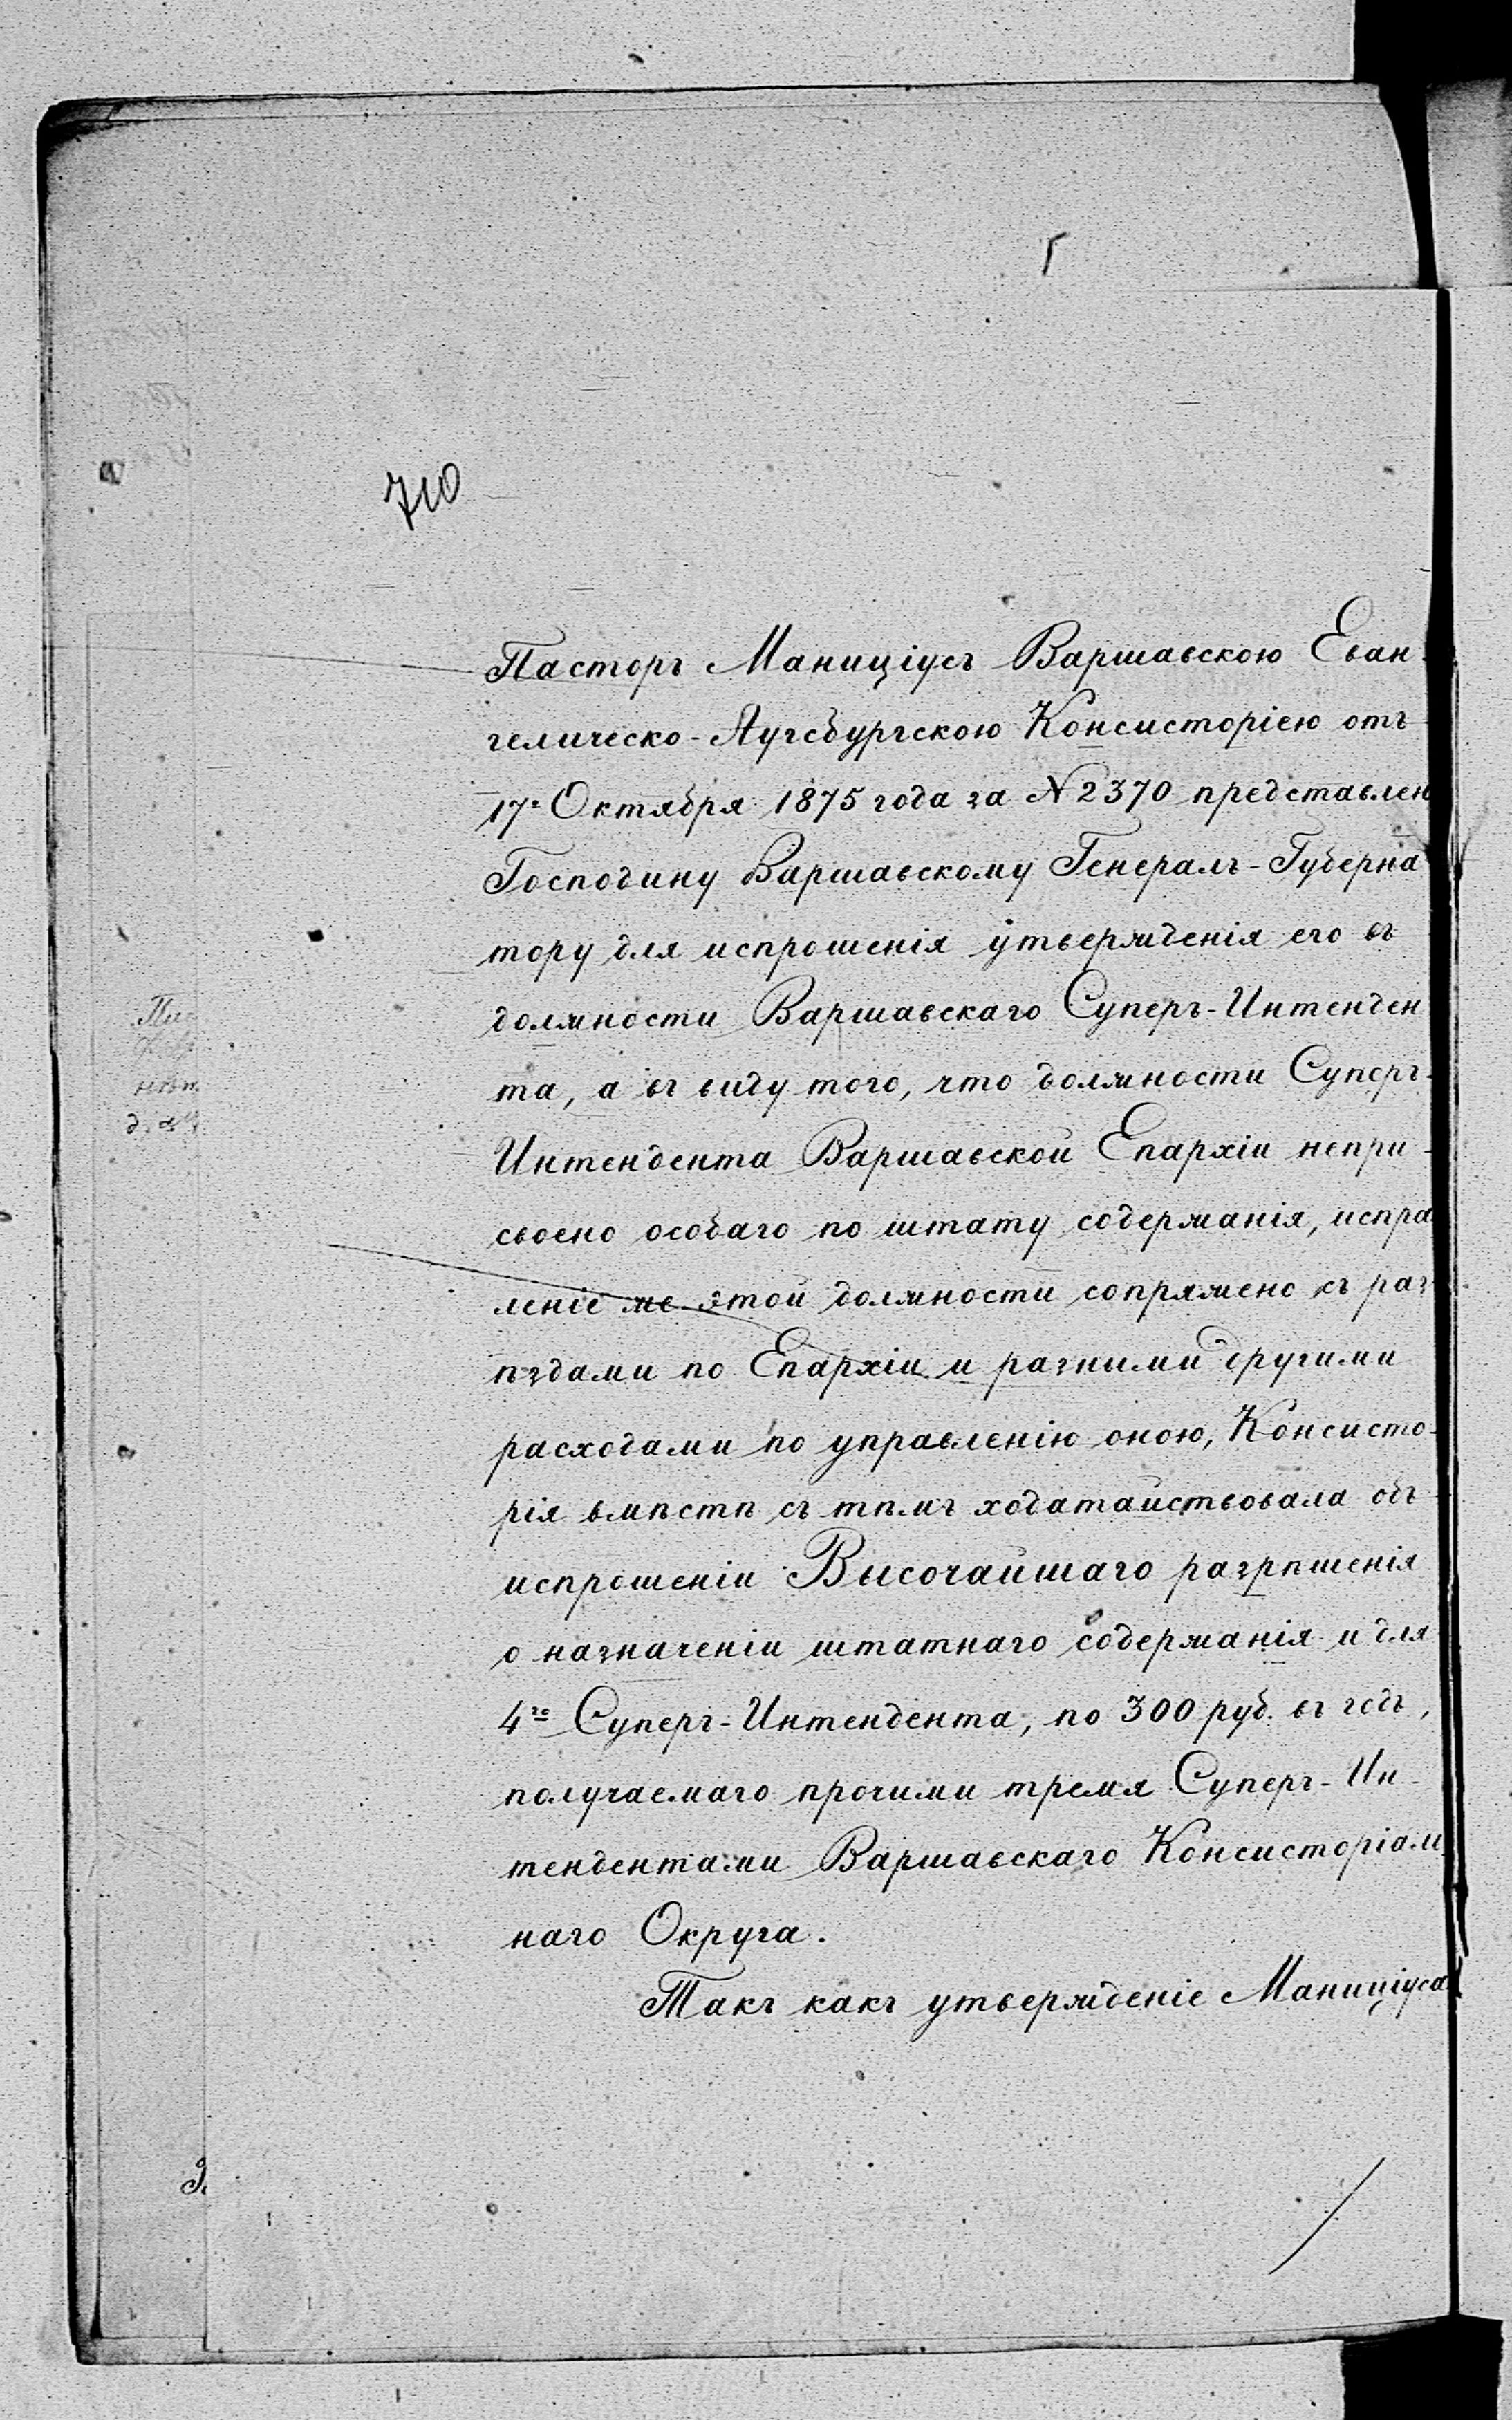 710
Пасторъ Маницiусъ Варшавскою Еван-
гелическо-Аугсбургскою Консисторiею отъ
17го Октября 1875 года за № 2370 представлен
Господину Варшавскому Генералъ-Губерна
тору для испрошенiя утвержденiя его въ
должности Варшавскаго Суперъ-Интенден
та, а въ виду того, что должности Суперъ-
Интендента Варшавской Епархiи непри-
своено особаго по штату содержанiя, испра
ленiе же этой должности сопряжено съ раз
ѣздами по Епархiи и разними другими
расходами по управленiю оною, Консисто-
рiя вмѣстѣ съ тѣмъ ходатайствовала объ
испрошенiи Высочайшаго разрѣшенiя
о назначенiи штатнаго содержанiя и для
4го Суперъ-Интендента, по 300 руб. въ годъ,
получаемаго прочими тремя Суперъ-Ин-
тендентами Варшавскаго Консисторiаль
наго Округа.
Такъ какъ утвержденiе Маницiуса